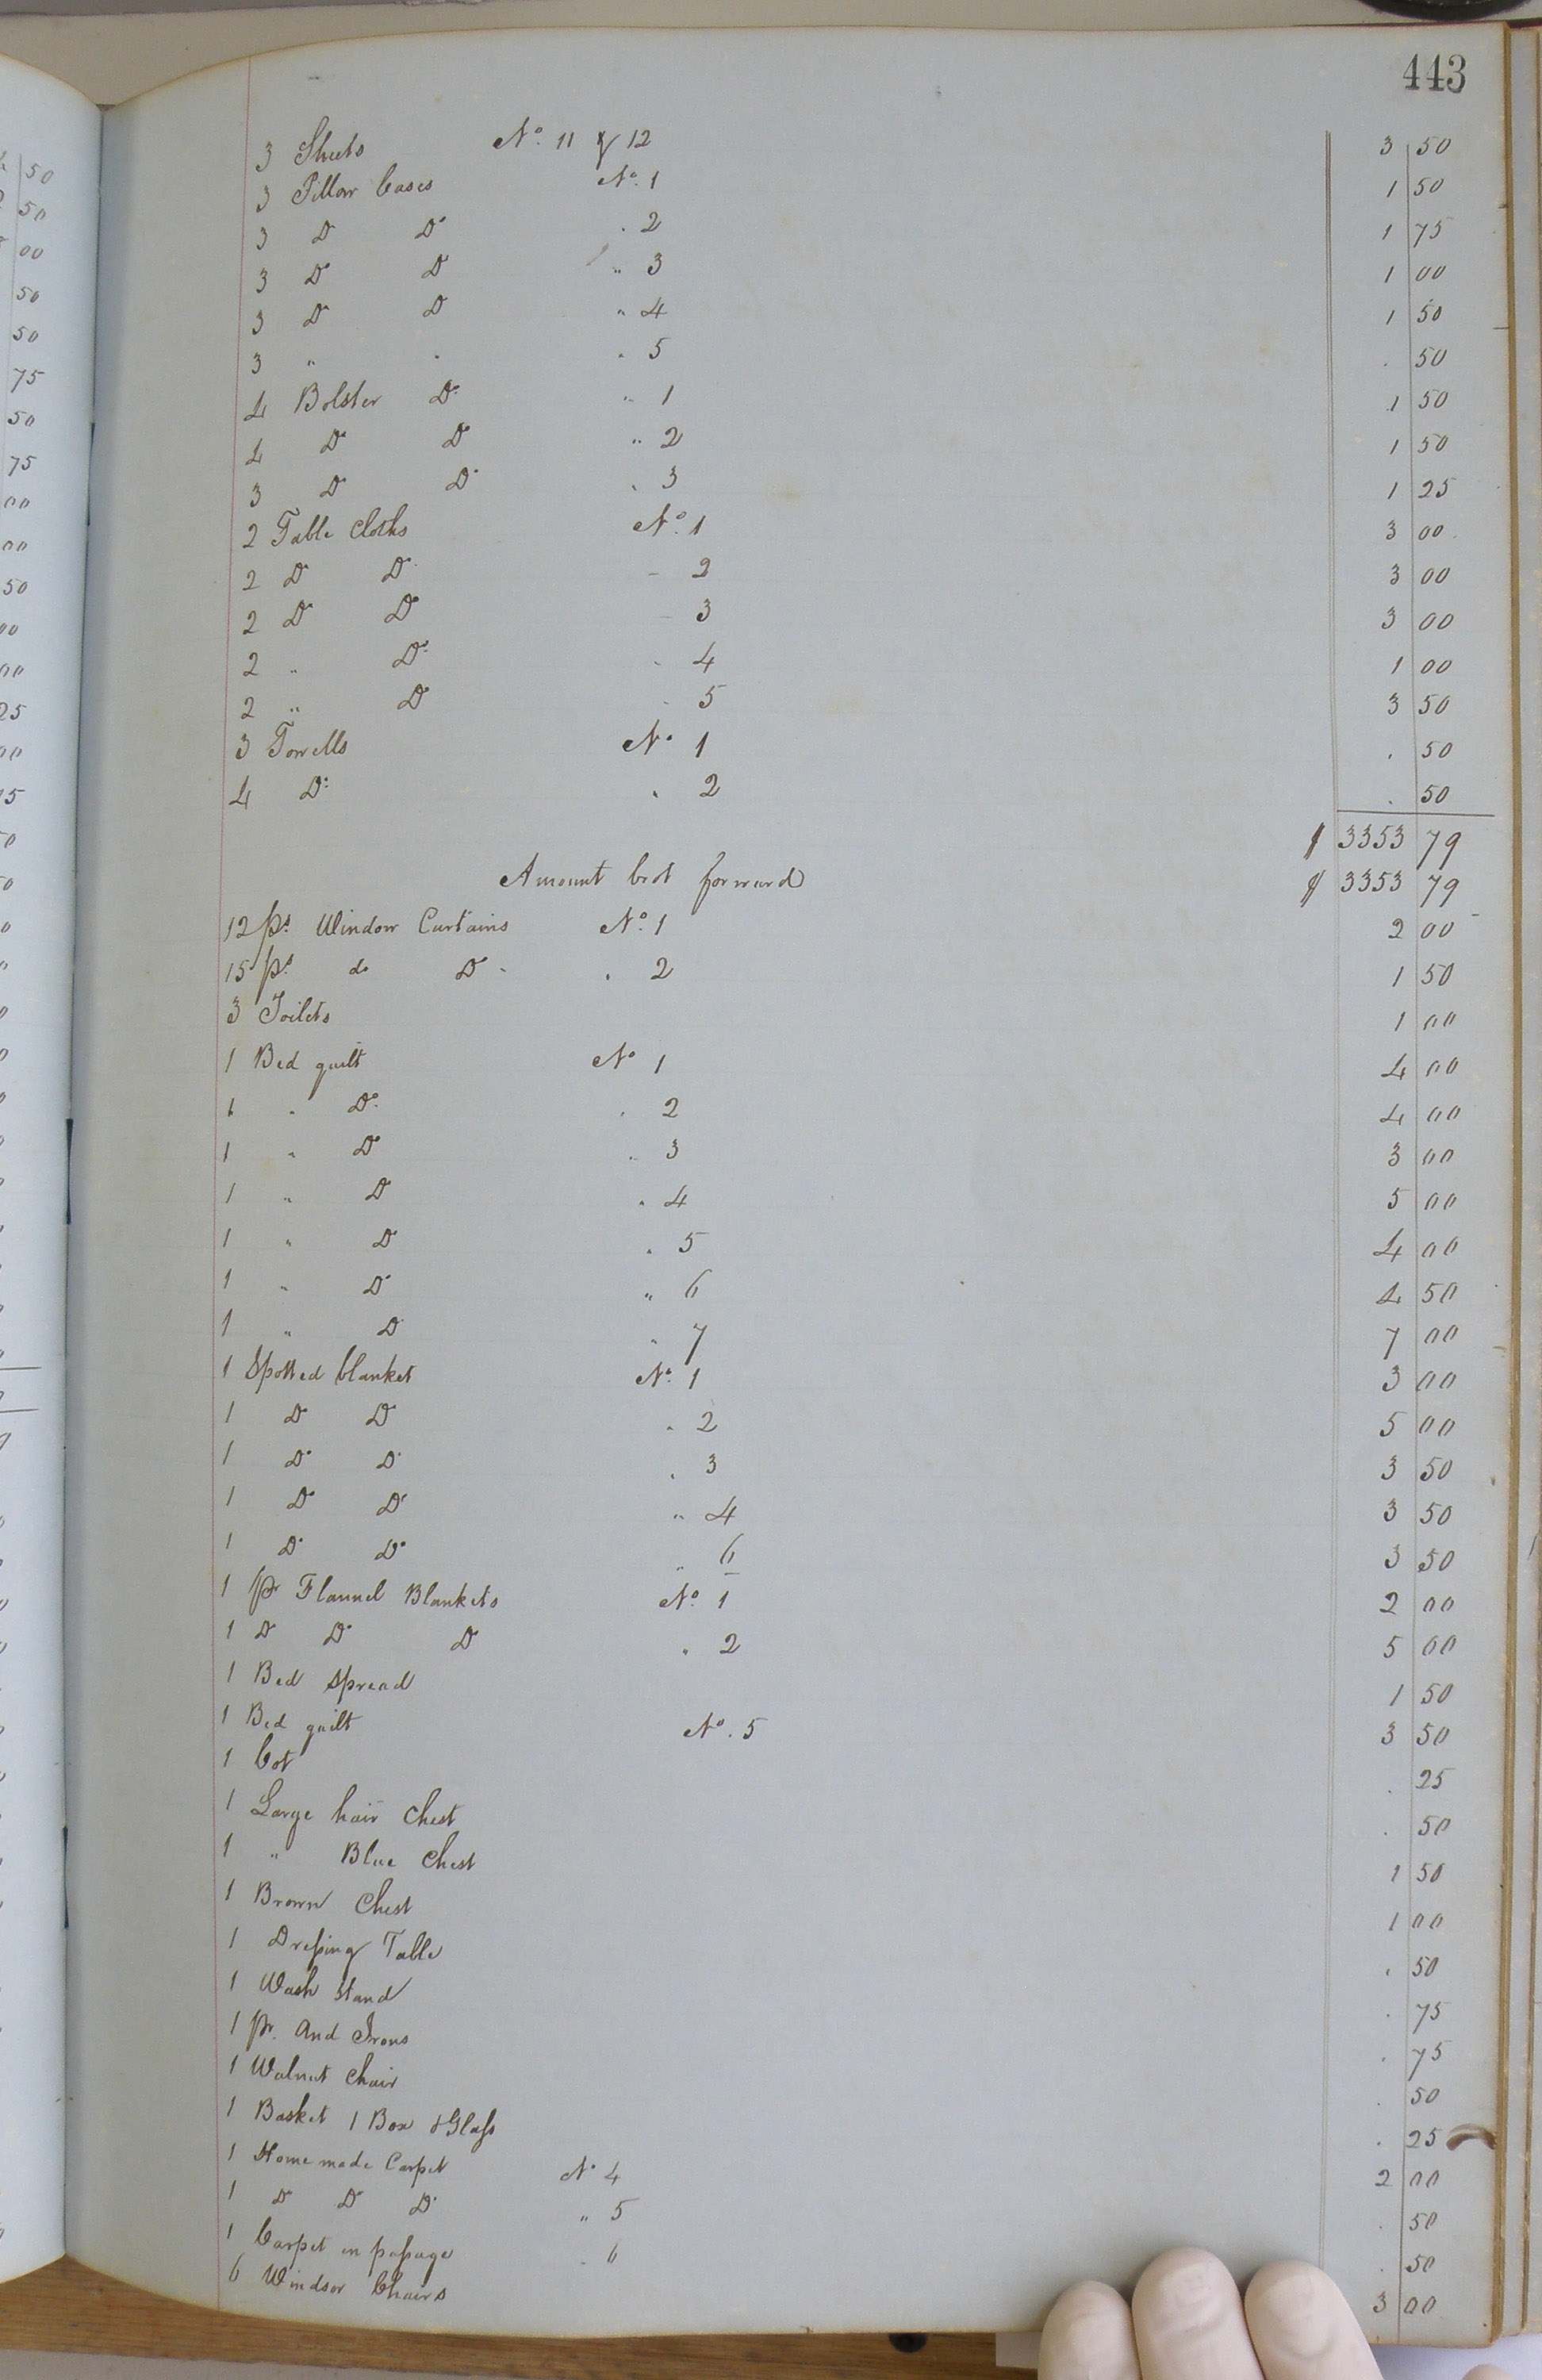 443
3 Sheets No. 11 & 12 3 50
3 Pillow Cases No. 1 1 50
3 Do Do . 2 1 75
3 Do Do " 3 1 00
3 Do Do " 4 1 50
3 " . " 5 . 50
4 Bolster Do. " 1 1 50
4 Do Do " 2 1 50
3 Do Do . 3 1 25
2 Table Cloths No. 1 3 00
2 Do Do. - 2 3 00
2 Do Do - 3 3 00
2 " Do. . 4 1 00
2 " Do . 5 3 50
3 Towells No 1 . 50
4 Do: . 2 . 50
$ 3353 79
Amount brot forward $ 3353 79
12 ps. Window Curtains No. 1 2 00
15 ps. do Do . 2 1 50
3 Toilets 1 00
1 Bed quilt No 1 4 00
1 " Do. . 2 4 00
1 " Do " 3 3 00
1 " Do " 4 5 00
1 " Do " 5 4 00
1 " Do " 6 4 50
1 " Do " 7 7 00
1 Spotted blanket No. 1 3 00
1 Do Do " 2 5 00
1 Do Do . 3 3 50
1 Do Do " 4 3 50
1 Do Do " 6 3 50
1 pr Flannel Blankets No. 1 2 00
1 Do Do Do " 2 5 00
1 Bed Spread 1 50
1 Bed quilt No. 5 3 50
1 Cot . 25
1 Large hair Chest . 50
1 " Blue Chest 1 50
1 Brown Chest 1 00
1 Dressing Table . 50
1 Wash Stand . 75
1 pr. And Irons . 75
1 Walnut Chair . 50
1 Basket 1 Box & Glass . 25
1 Home made Carpet No 4 2 00
1 Do Do Do " 5 . 50
1 Carpet in passage . 6 . 50
6 Windsor Chairs 3 00